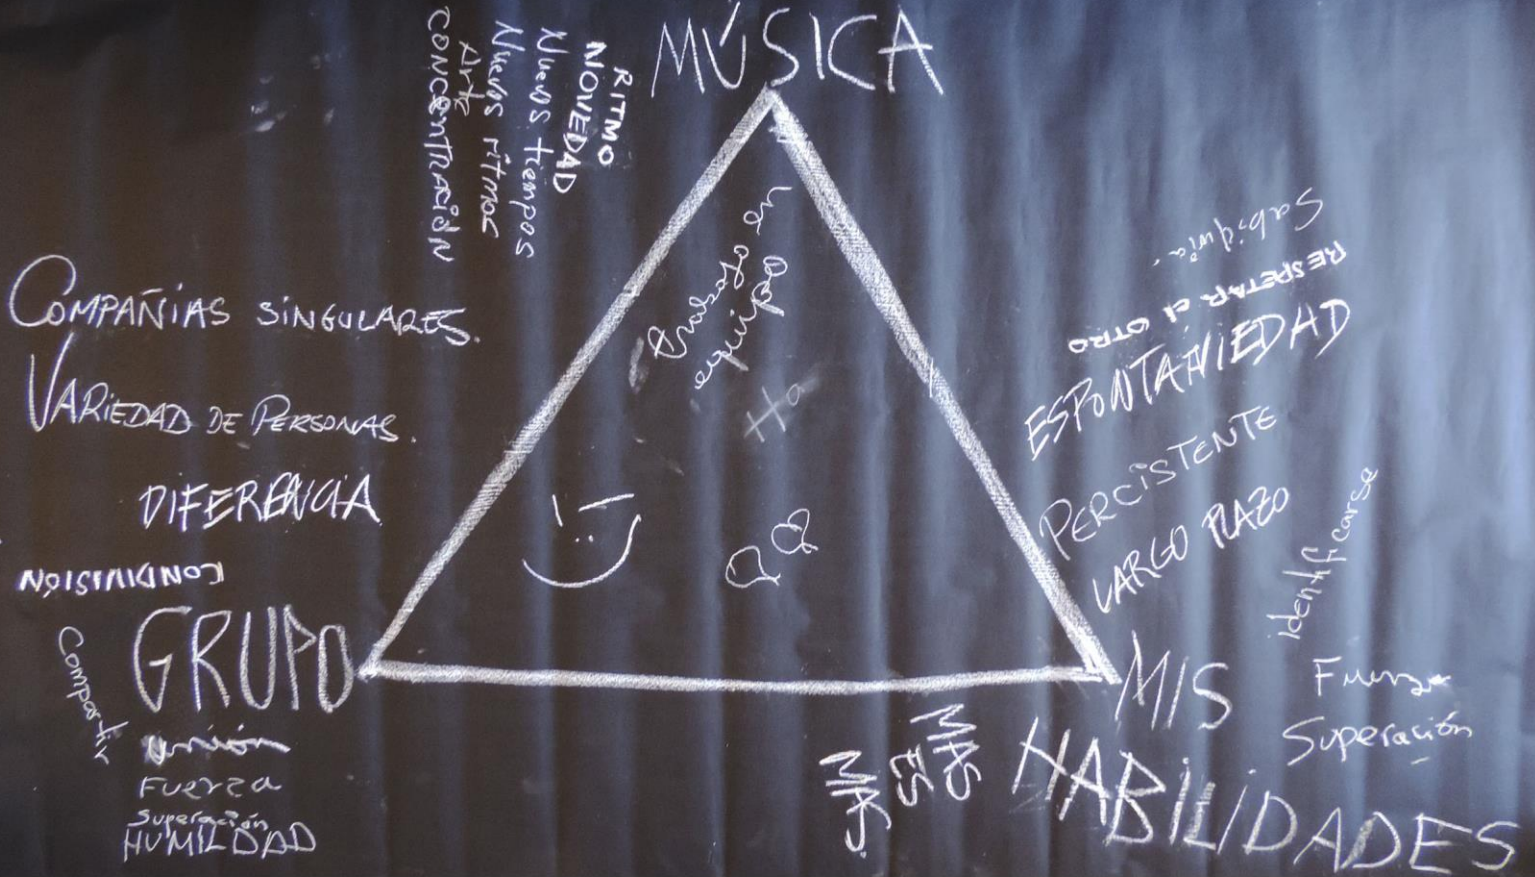 MÚSICA
RITMO
NOVEDAD
Nuevos tiempos
Nuevos ritmos
Arte
CONCENTRACIÓN
COMPAÑIAS SINGULARES.
VARIEDAD DE PERSONAS.
DIFERENCIA
CONDIVISIÓN
GRUPO
Compartir
unión
Fuerza
Superación
HUMILDAD
trabajo en
equipo
Ha
Sabiduria.
RESPETAR el OTRO
ESPONTANIEDAD
PERCISTENTE
LARGO PLAZO
identificarse
MIS
HABILIDADES
Fuerza
Superación
MAS
ES
MAS.